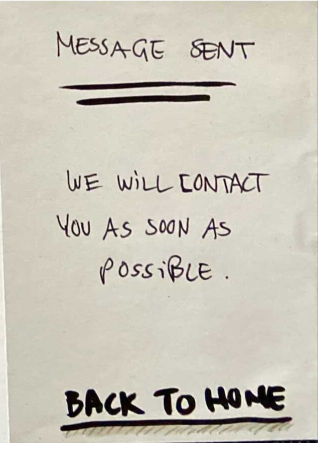 MESSAGE SENT
WE WiLL CONTACT
YOU AS SOON AS
POSSiBLE.
BACK TO HOME